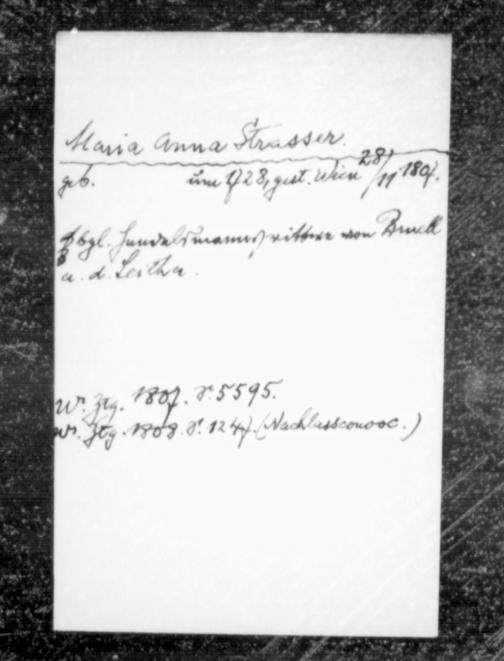 Maria Anna Strasser.
geb. um 1728, gest. Wien 28/11 1807.
Bgl. Handelsmannswittwe von Bruck
a. d. Leitha.
Wr. Ztg. 1807. S. 5595.
Wr. Ztg. 1808. S. 1247. (Nachlassconvoc.)